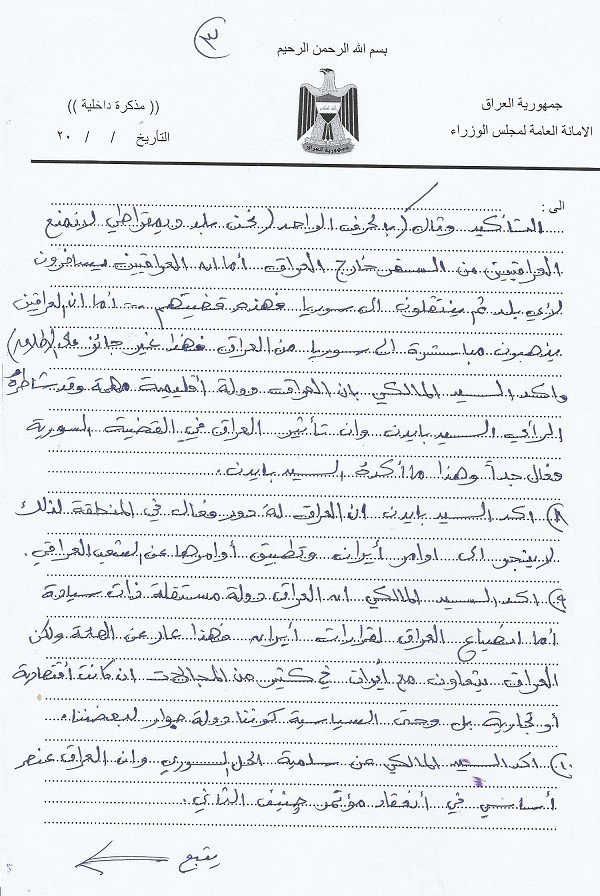 ٣
بسم الله الرحمن الرحيم
جمهورية العراق
الامانة العامة لمجلس الوزراء
(( مذكرة داخلية ))
التأريخ / / ٢٠
جمهورية العراق
الى :
التأكيد وقال (بالحرف الواحد (نحن بلد ديمقراطي لا نمنع
العراقيين من السفر خارج العراق أما ان العراقيين يسافرون
لأي بلد ثم ينتقلون الى سوريا فهذه قضيتهم .. أما ان العراقين
يذهبون مباشرة الى سوريا من العراق فهذا غير جائز على الاطلاق)
واكد السيد المالكي بان العراق دولة أقليمية مهمة وقد شاطره
الرأي السيد بايدن وان تأثير العراق في القضية السورية
فعال جداً وهذا ما أكده السيد بايدن .
٨) اكد السيد بايدن ان العراق له دور فعال في المنطقة لذلك
لا ينجر الى اوامر أيران وتطبيق أوامرها عن الشعب العراقي .
٩) اكد السيد المالكي ان العراق دولة مستقلة ذات سيادة
أما انصياع العراق لقرارات أيران فهذا عار عن الصحة ولكن
العراق يتعاون مع أيران في كثير من المجالات ان كانت أقتصادية
أو تجارية بل وحتى السياسية كوننا دولة جوار لبعضنا .
١٠) اكد السيد المالكي عن سلمية الحل السوري وان العراق عنصر
أساسي في أنعقاد مؤتمر جنيف الثاني .
يتبع